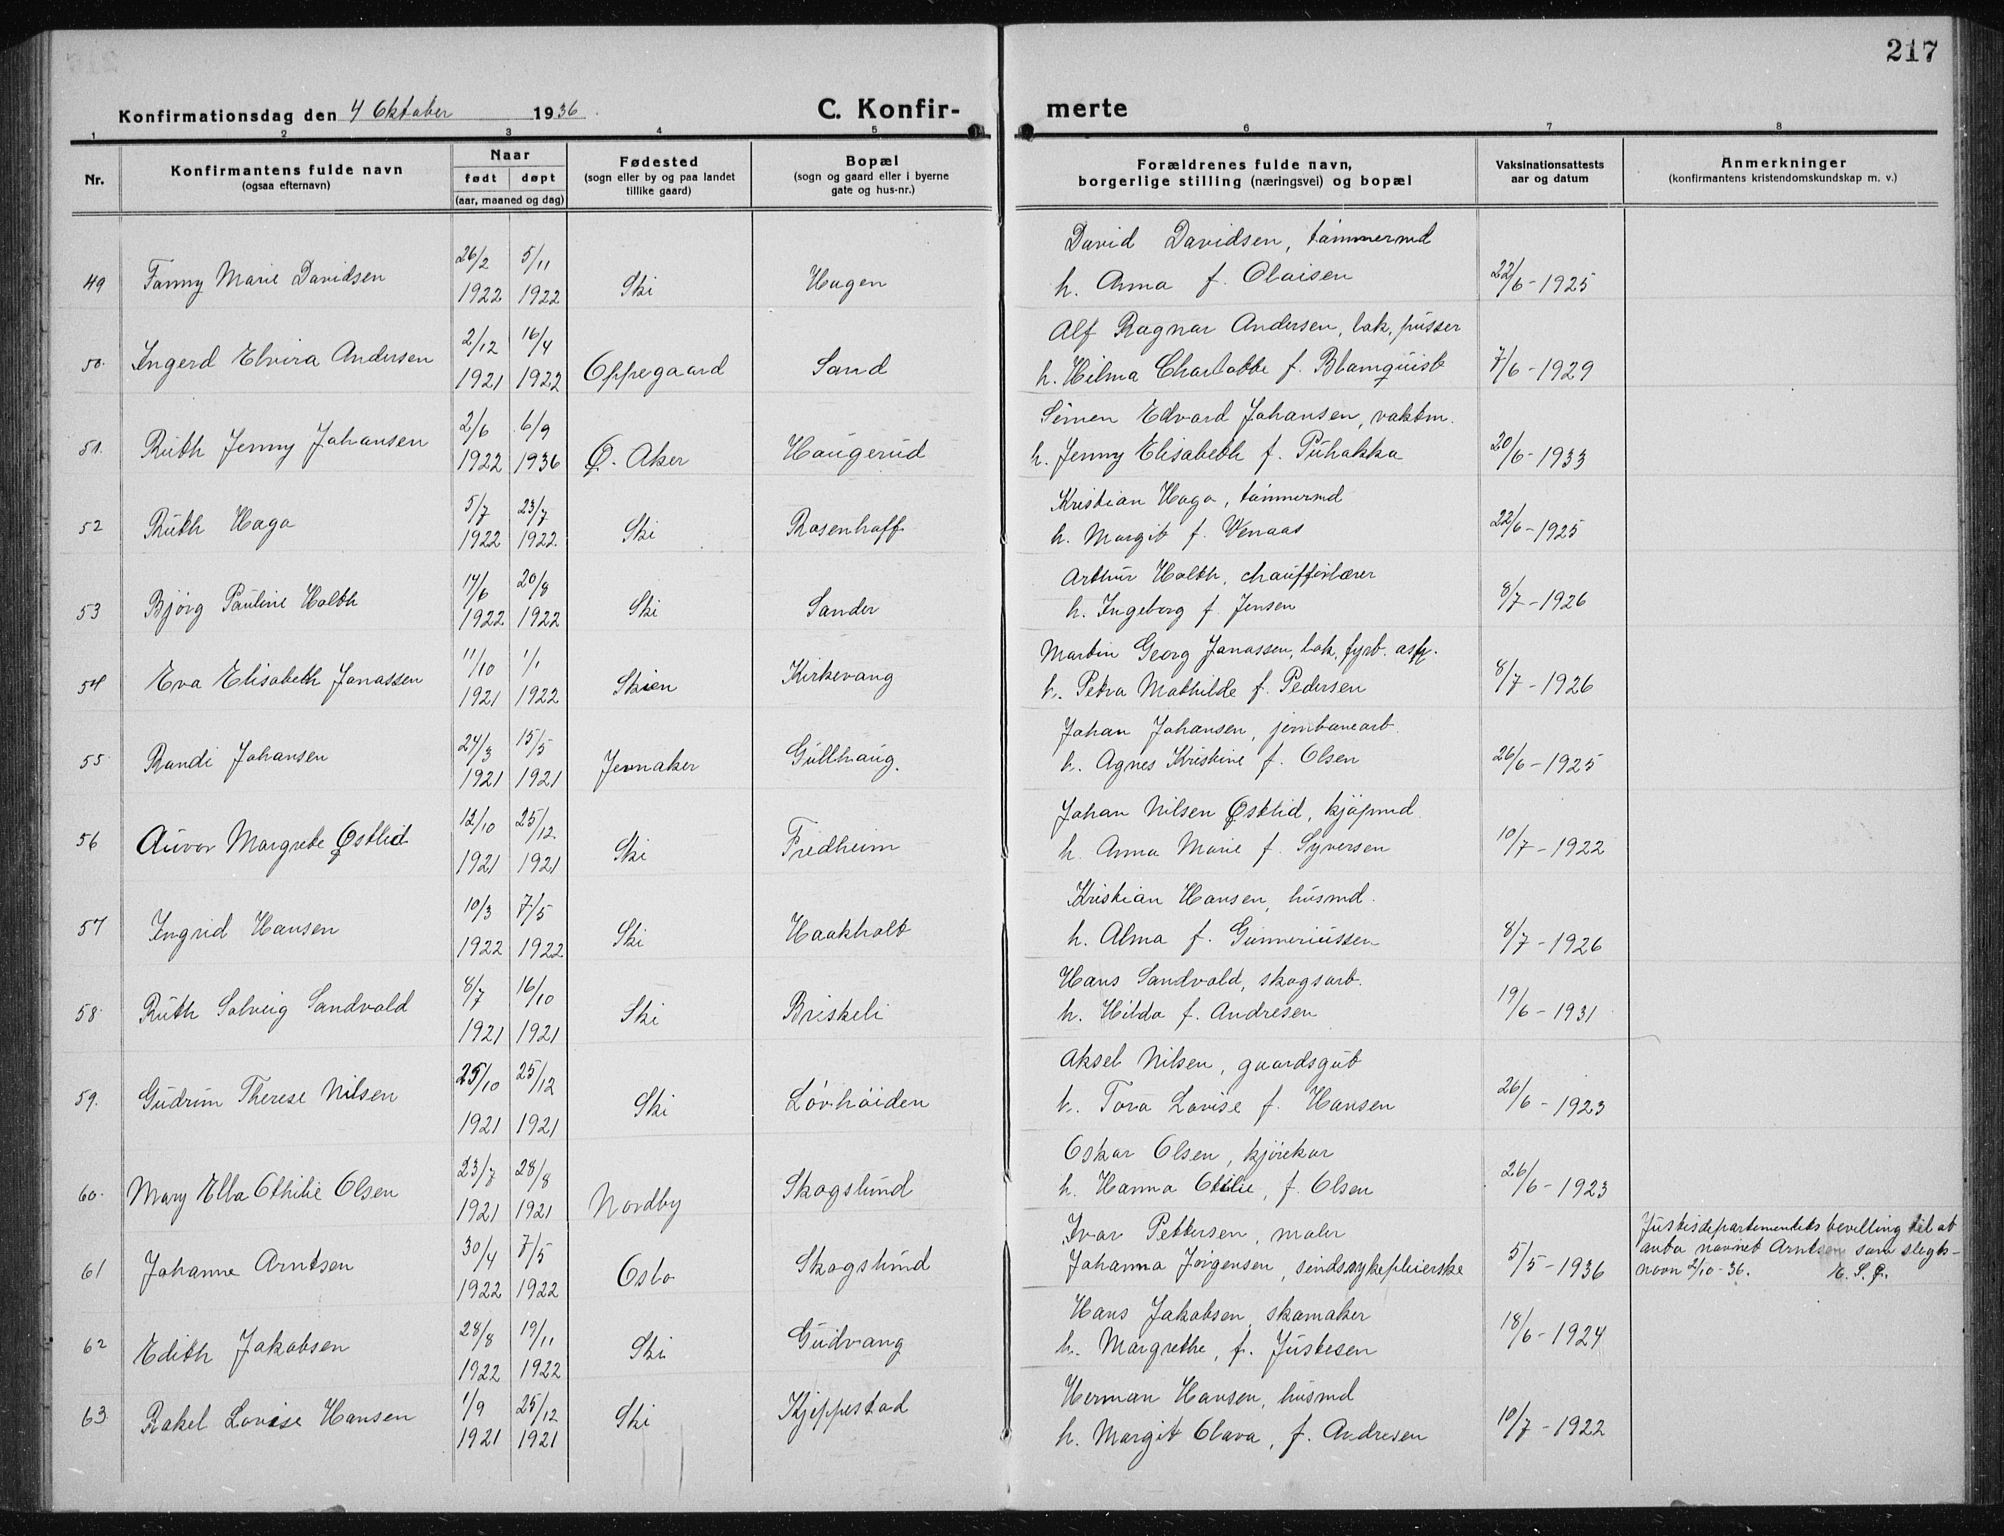 217
Konfirmationsdag den 4 Oktober 1936. C. Konfir- merte
1 2 3 4 5 6 7 8
Nr. Konfirmantens fulde navn (ogsaa efternavn) Naar født døpt (aar, maaned og dag) Fødested (sogn eller by og paa landet tillike gaard) Bopæl (sogn og gaard eller i byerne gate og hus-nr.) Forældrenes fulde navn, borgerlige stilling (næringsvei) og bopæl Vaksinationsattests aar og datum Anmerkninger (konfirmantens kristendomskundskap m. v.)
26/2 5/11 David Davidsen, tømmermd
49 Fanny Marie Davidsen 1922 1922 Ski Hagen h. Anna f. Olaisen 22/6-1925
2/12 16/4 Alf Ragnar Andersen, lok. pusser
50. Ingerd Elvira Andersen 1921 1922 Oppegaard Sand h. Hilma Charlotte f. Blomquist 7/6-1929
2/6 6/9 Simen Edvard Johansen, vaktm.
51. Ruth Jenny Johansen 1922 1936 Ø. Aker Haugerud h. Jenny Elisabeth f. Puhakka 20/6-1933
5/7 23/7 Kristian Haga, tømmermd
52 Ruth Haga 1922 1922. Ski Rosenhoff h. Margit f. Venaas 22/6-1925
14/6 20/8 Arthur Holth, chaufførlærer
53 Bjørg Pauline Holth 1922 1922 Ski Sander h. Ingeborg f. Jensen 8/7-1926
11/10 1/1 Martin Georg Jonassen, lok. fyrb. asp.
54 Eva Elisabeth Jonassen 1921 1922 Skien Kirkevang h. Petra Mathilde f. Pedersen 8/7-1926
24/3 15/5 Johan Johansen, jernbanearb.
55 Randi Johansen 1921 1921 Jevnaker Gullhaug. h. Agnes Kristine f. Olsen 26/6-1925
12/10 25/12. Johan Nilsen Østlid, kjøpmd.
56 Auvor Margrete Østlid 1921 1921 Ski Fredheim h. Anna Marie f. Syversen 10/7-1922
10/3 7/5 Kristian Hansen, husmd.
57 Ingrid Hansen 1922 1922 Ski Haakholt h. Alma f. Gunneriussen 8/7-1926
8/7 16/10 Hans Sandvold, skogsarb.
58. Ruth Solveig Sandvold 1921 1921 Ski Briskeli h. Hilda f. Andresen 19/6-1931
25/10 25/12 Aksel Nilsen, gaardsgut
59. Gudrun Therese Nilsen 1921 1921 Ski Løvhøiden h. Tora Lovise f. Hansen 26/6-1923
23/7 28/8 Oskar Olsen, kjørekar
60. Mary Ella Othilie Olsen 1921 1921 Nordby Skogslund h. Hanna Otilie, f. Olsen 26/6-1923
30/4 7/5 Ivar Pettersen, maler Justisdepartementets bevilling til at
61 Johanne Arntsen 1922 1922 Oslo Skogslund Johanna Jørgensen, sindssykepleierske 5/5-1936 anta navnet Arntsen som slegts-
navn 2/10-36.
28/8 19/11 Hans Jakobsen, skomaker
62 Edith Jakobsen 1922 1922 Ski Gudvang h. Margrethe, f. Justesen 18/6-1924
1/9 25/12 Herman Hansen, husmd
63 Rakel Lovise Hansen 1921 1921 Ski Kjeppestad h. Margit Olava, f. Andresen 10/7-1922